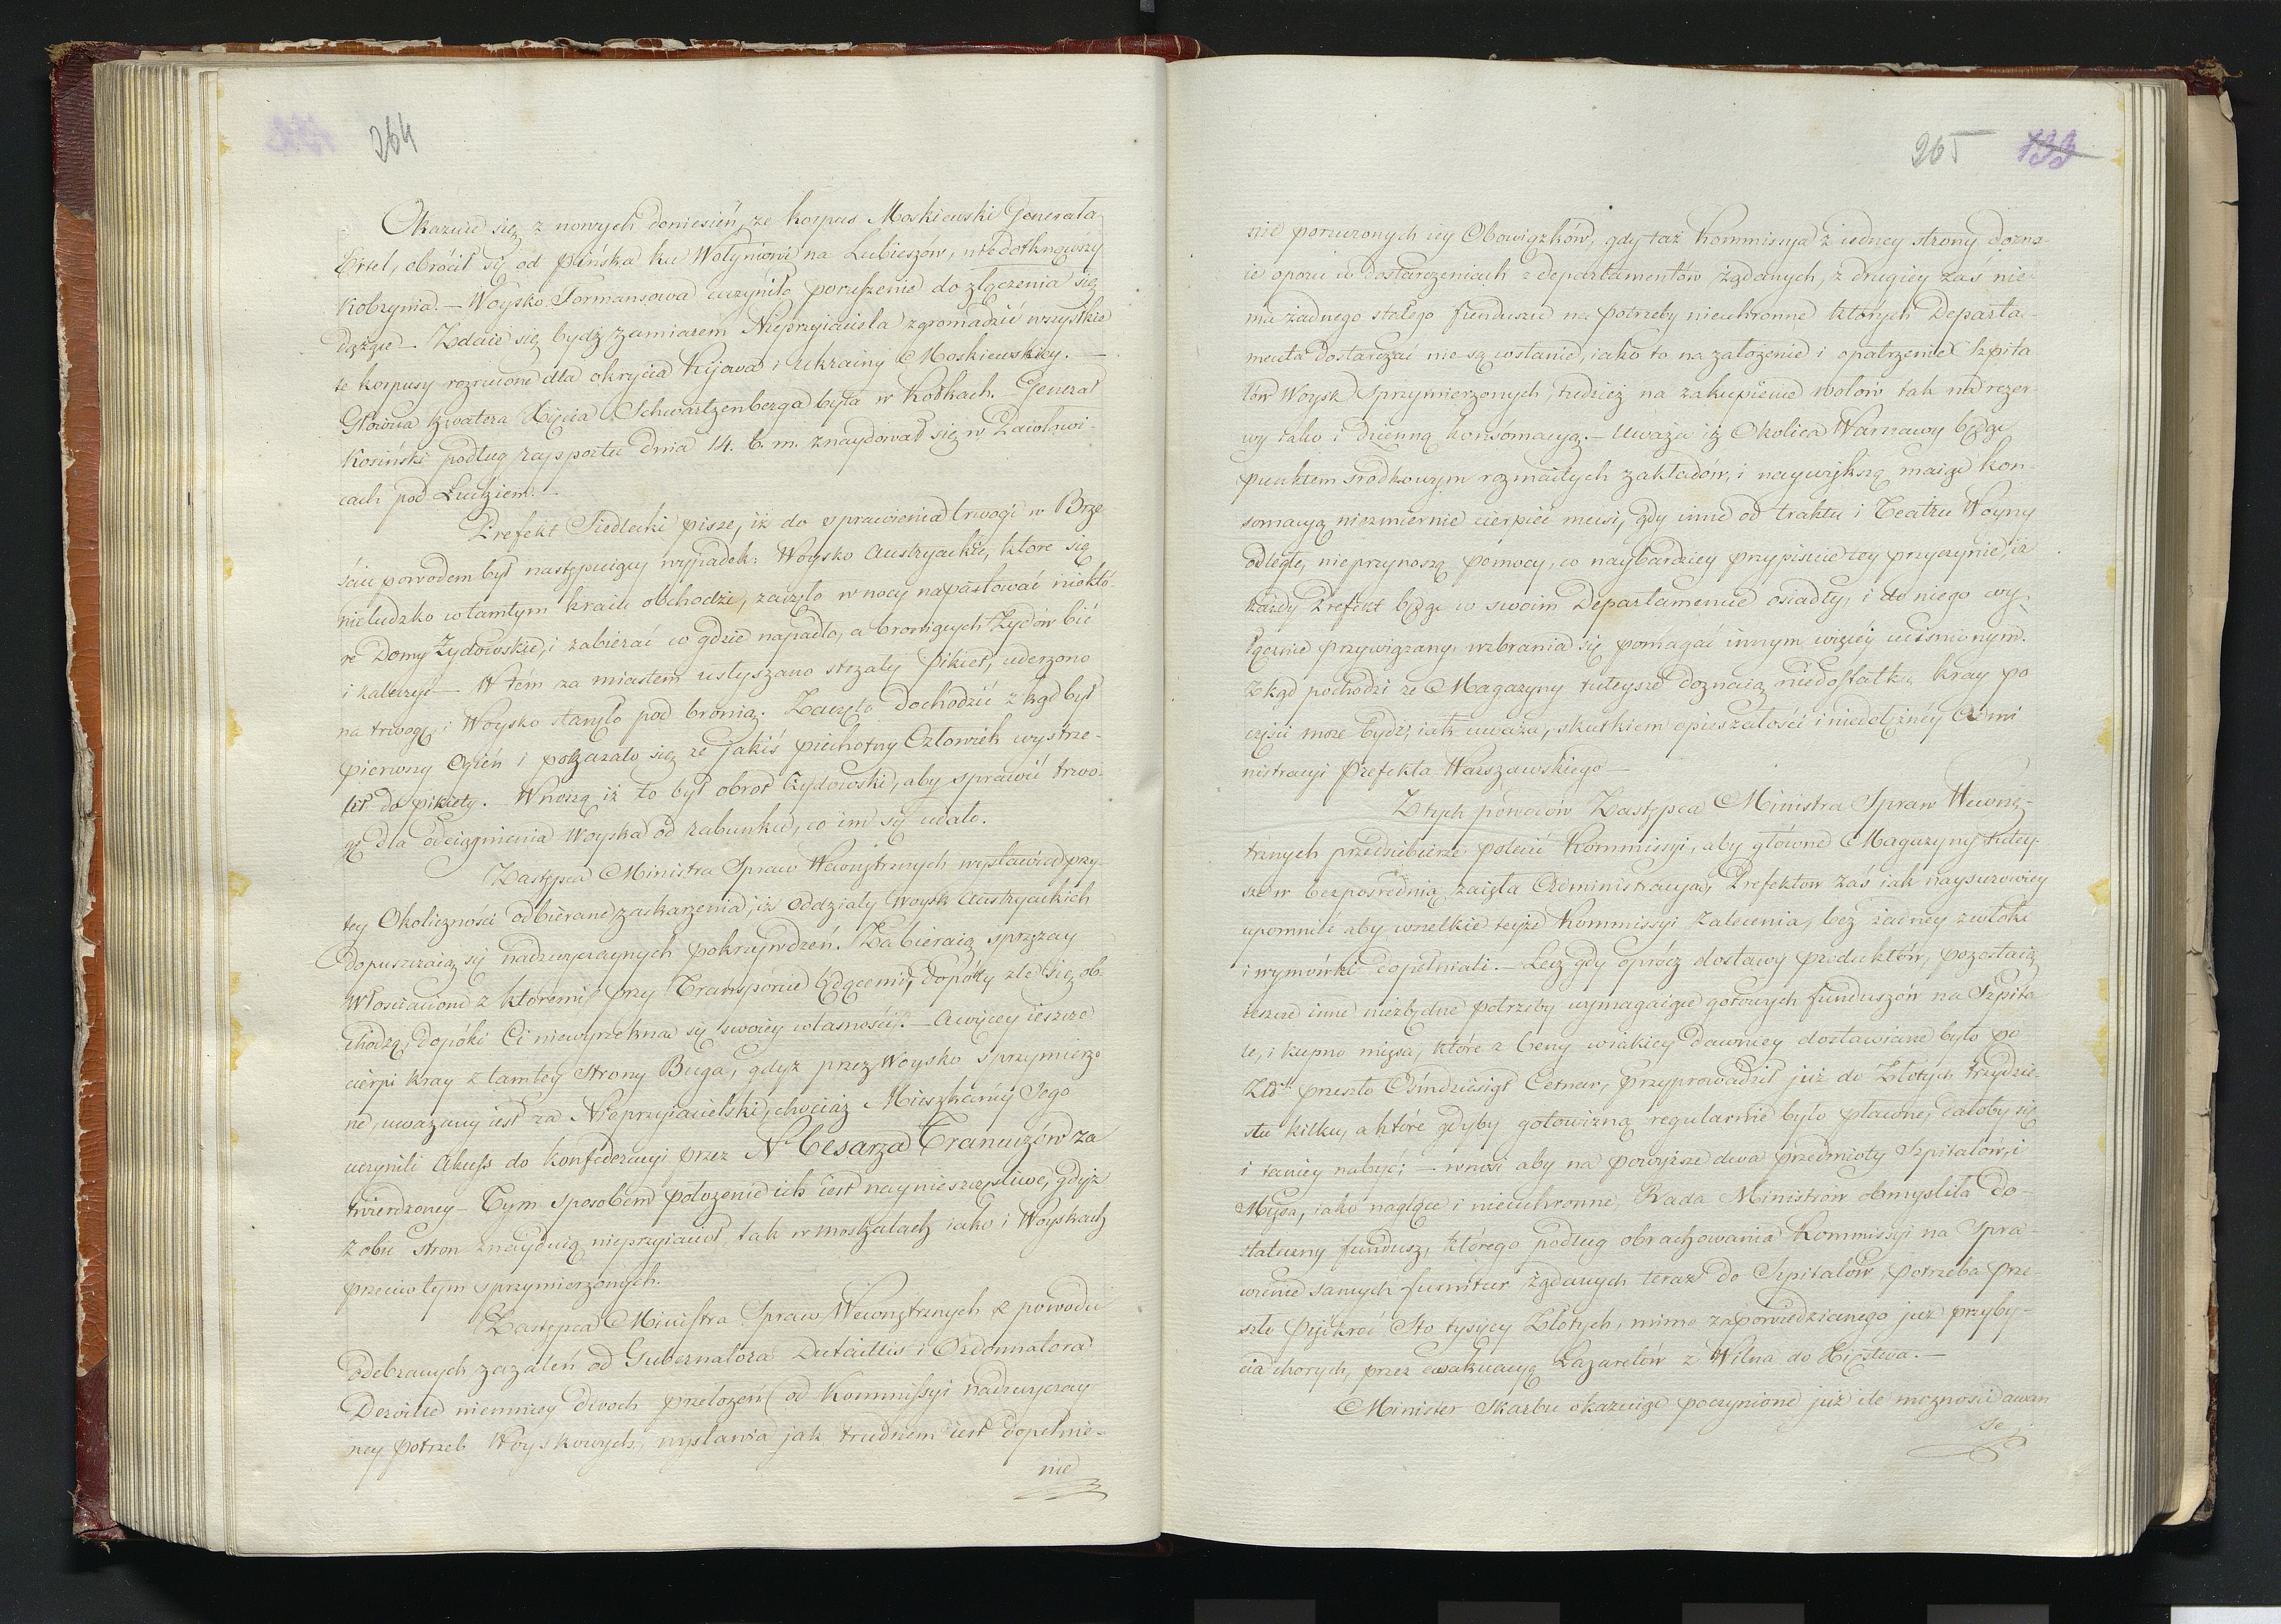 264
Okazuie się z nowych doniesień, ze korpus Moskiewski Generała
Ertel, obrócił się od Pińska ku Wołyniowi na Lubieszów, nie dotknąwszy
Kobrynia. — Woysko Tormansowa uczyniło poruszenie do złączenia się
dążąc — Zdaie się bydź zamiarem Nieprzyiaciela zgromadzić wszystkie
te korpusy rozrucone dla okrycia Kijowa i Ukrainy Moskiewskiey. —
Główna kwatera Xięcia Schwartzenberga była w Kołkach. Generał
Kosiński podług rapportu dnia 14. b. m. znaydował się w Zawołwi-
cach pod Łuckiem. —
Prefekt Siedlecki pisze, iż do sprawienia trwogi w Brze-
ściu powodem był następuiący wypadek: Woysko Austryackie, ktore się
nieludzko w tamtym kraiu obchodzi, zaczęło w nocy napastować niektó-
re Domy Żydowskie, i zabierać co gdzie napadło, a broniących Żydów bić
i kaleczyć — W tém za miastem usłyszano strzały pikiet, uderzono
na trwogę, i Woysko stanęło pod bronią. Zaczęto dochodzić z kąd był
pierwszy Ogień i pokazało się ze jakiś piechotny Człowiek wystrze-
lił do pikiety. — Wnoszą iż to był obrot Żydowski, aby sprawić trwo-
gę dla odciągnienia Woyska od rabunku, co im się udało.
Zastępca Ministra Spraw Wewnętrznych wystawia przy
tey Okoliczności odbierane zaskarzenia, iż oddziały Woysk Austryackich
dopuszczaią się nadzwyczaynych pokrzywdzeń. Zabieraią sprzęzay
Włościanom z któremi przy Transporcie będącemi, dopóty zle się ob-
chodzą, dopóki Ci niewyrzekną się swoiey własności. — A więcey ieszcze
cierpi kray z tamtey Strony Buga, gdyż przez Woysko sprzymierzo-
ne, uważany iest za Nieprzyiacielski, chociaż Mieszkańcy Jego
uczynili Akcess do Konfederacyi przez N. Cesarza Francuzów za
twierdzoney — Tym sposobem położenie ich iest naynieszczęśliwe, gdyż
z obu stron znayduią nieprzyiaciół, tak w moskalach iako i Woyskach
przeciw tym sprzymierzonych.
Zastępca Ministra Spraw Wewnętrznych z powodu
odebranych zażaleń od Gubernatora Dutaillis i Ordonnatora
Dezvillé niemniey dwoch przełożeń od Kommissyi Nadzwyczay
ney potrzeb Woyskowych, wystawia jak trudném iest dopełnie-
nie
265 133
nie poruczonych iey Obowiązków, gdy taż Kommissya z iedney strony dozna-
ie oporu w dostarczeniach z departamentów żądanych, z drugiey zaś nie
ma żadnego stałego funduszu na potrzeby nieuchronne których Departa-
menta dostarczać nie są w stanie, iako to na założenie i opatrzenie Szpita
lów Woysk Sprzymierzonych, tudzież na zakupienie wołów tak na rezer-
wy iako i dzienną konsomacyą. — Uważa iż Okolica Warszawy będąc
punktem środkowym rozmaitych zakładów, i naywiększą maiąc kon-
somacyą niezmiernie cierpieć musi, gdy inne od traktu i Teatru Woyny
odległe, nieprzynoszą pomocy, co naybardziey przypisuie tey przyczynie, iż
każdy Prefekt będąc w swoim Departamencie osiadły, i do niego wy-
łącznie przywiązany, wzbrania się pomagać innym więcey uciśnionym.
Z kąd pochodzi ze Magazyny tuteysze doznaią niedostatku, kray po
części może bydź, iak uważa, skutkiem opieszałości i niedołężnéy Admi
nistracyi Prefekta Warszawskiego —
Z tych powodów Zastępca Ministra Spraw Wewnę-
trznych przedsiębierze polecić Kommissyi, aby główne Magazyny tutey-
sze w bezpośrednią zaięła Administracyą, Prefektow zaś iak naysurowiey
upomnić aby wszelkie teyże Kommissyi zalecenia, bez żadney zwłoki
i wymówki dopełniali. — Lecz gdy oprócz dostawy produktów, pozostaią
ieszcze inne niezbędne potrzeby wymagaiące gotowych funduszów na Szpita
le, i kupno mięsa, które z Ceny w iakiey dawniey dostawiane było po
Złt. przeszło Ośmdziesiąt Cetnar, przyprowadził już do Złotych trzydzie-
stu kilku, a które gdyby gotowizną regularnie było płacone, dałoby się
i taniey nabyć; — wnosi aby na powyższe dwa przedmioty Szpitalów, i
Mięsa, iako naglące i nieuchronne, Rada Ministrów obmyśliła do-
stateczny fundusz, którego podług obrachowania Kommissyi na Spra-
wienie samych furnitur żądanych teraz do Szpitalów, potrzeba prze
szło Pięćkroć Sto tysięcy Złotych, mimo zapowiedzianego już przyby-
cia chorych, przez ewakuacyą Lazaretów z Wilna do Xięstwa. —
Minister Skarbu okazuiąc poczynione już ile możności awan
se